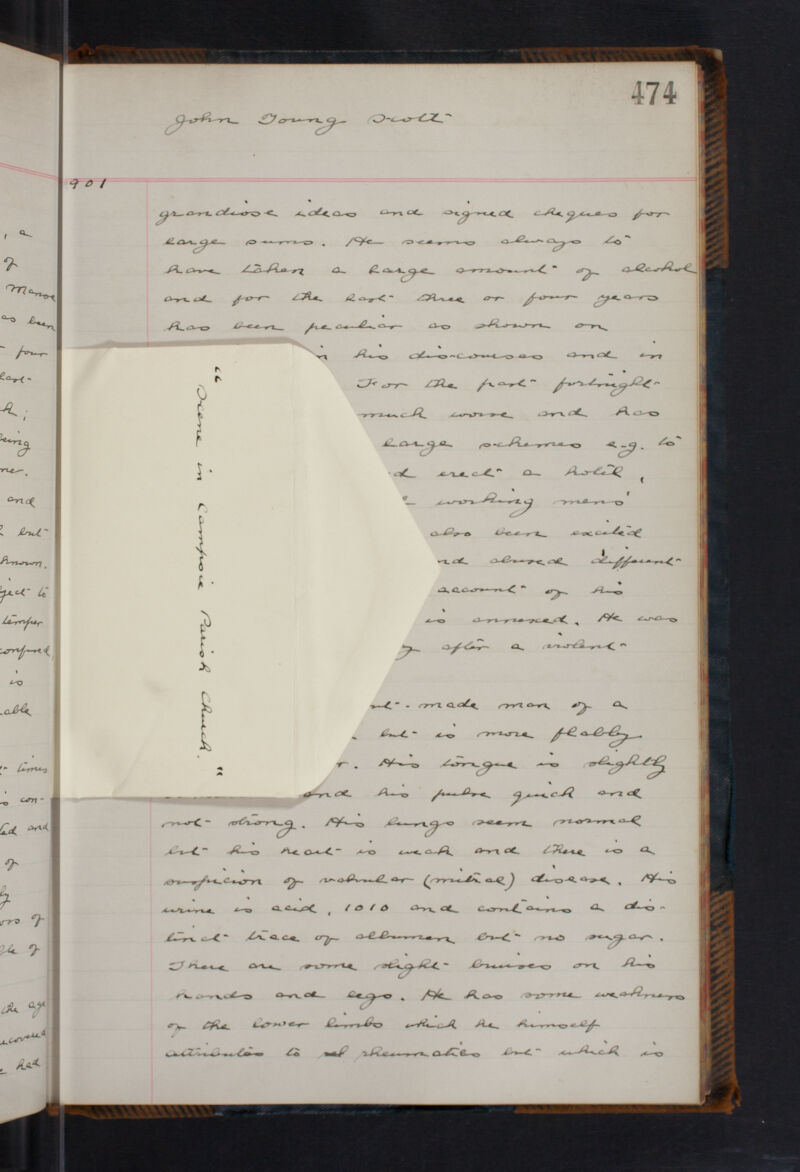 474
John Young Scott
901
grandiose ideas and signed cheques for
large sums. He seems always to
have taken a large amount of alcohol
and for the last three or four years
has been peculiar as shown on
in his discourses and in
For the past fortnight
much worse and has
large schemes e.g. to
erect a hotel,
working mens'
also been excited
abused different
account of his
is annexed. He was
after a violent
"Scene in Campsie Parish Church."
made man of a
but is more flabby
His tongue is slightly
and his pulse quick and
not strong. His lungs seem normal
but his heart is weak and there is a
suspicion of valvular (mitral) disease. His
urine is acid, 1010 and contains a dis-
tinct trace of albumen but no sugar.
There are some slight bruises on his
hands and legs. He has some weakness
of the lower limbs which he himself
attributes to rheumatics but which is
, a
of
Manse
as been
four
last
being
and
but
known.
to
temper
confused
is
able
times
con-
and
of
of
of
the age
had